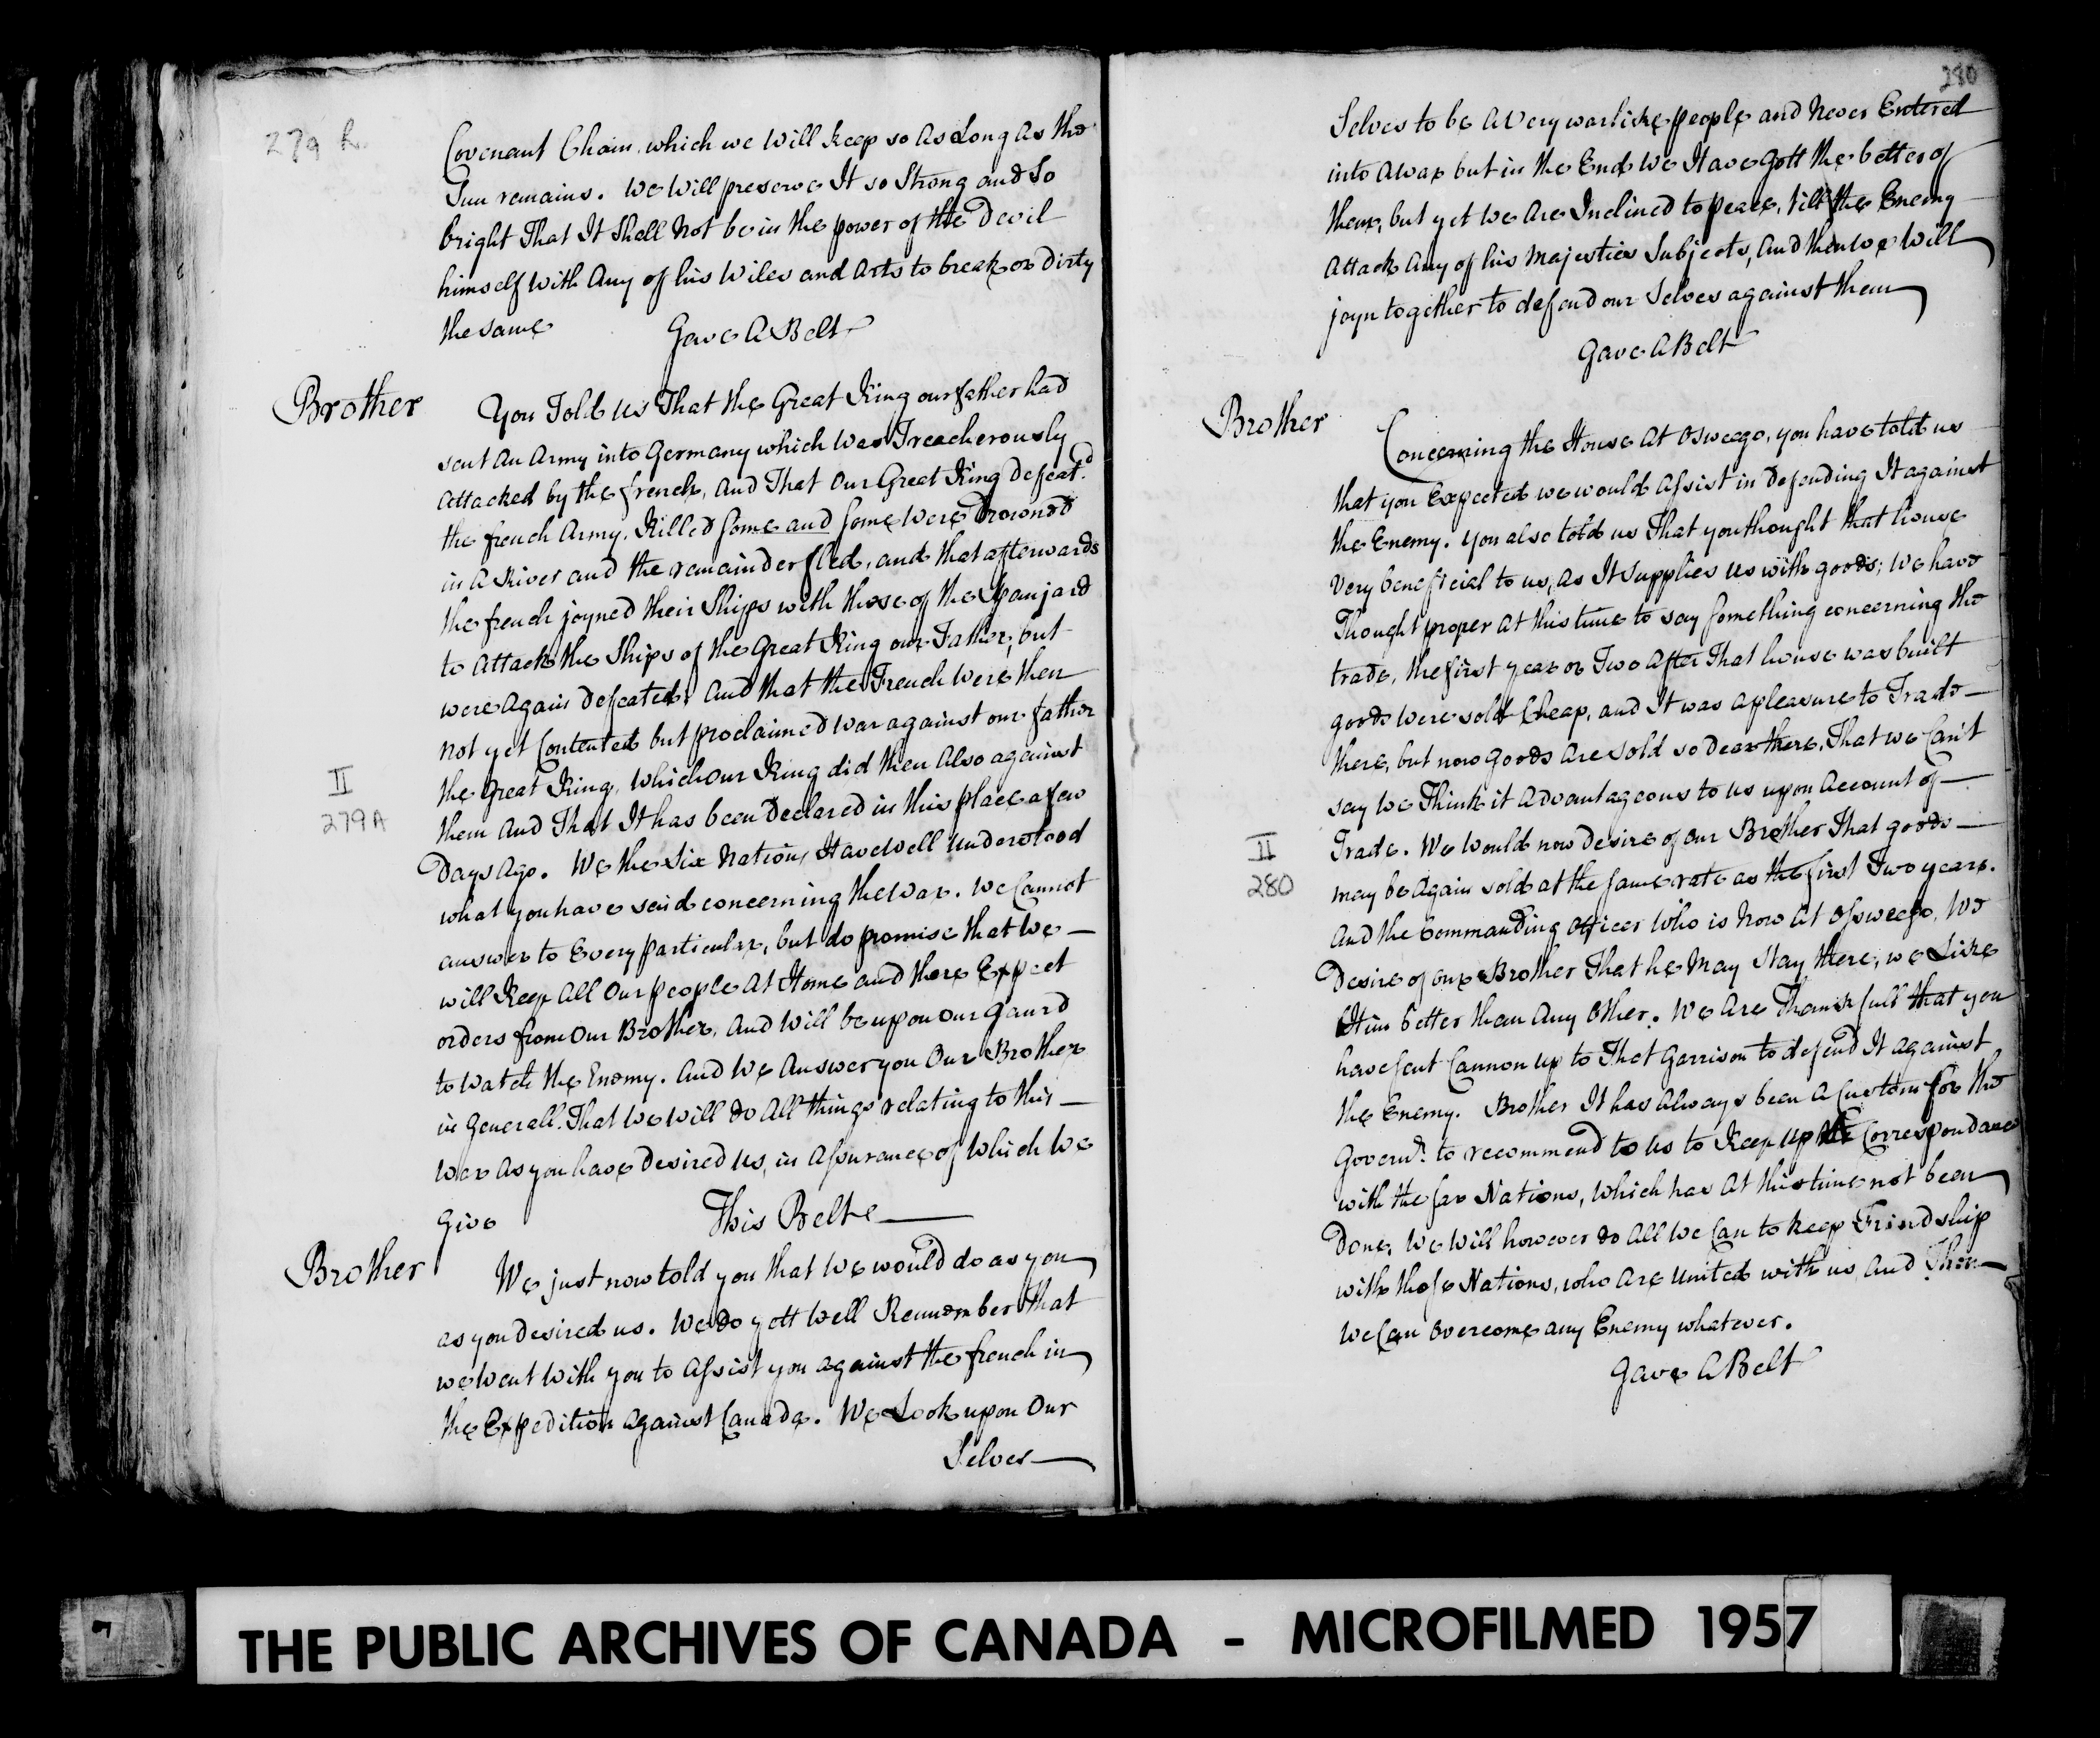 279 A.
Covenant Chain, which we Will keep so as Long as the
Sun remains. We Will preserve It so Strong and So
bright That It Shall Not be in the power of the Devil
himself With Any of his Wiles and Arts to break or Dirty
the same
Gave A Belt
Brother
You Told us That the Great King our father had
sent An Army into Germany which Was Treacherously
Attacked by the french, and That Our Great King Defeat.d
the french Army. Killed some and some Were Drownd
in A River and the remainder fled, and that afterwards
the french joyned their Ships with those of the Spanjard
to Attack the Ships of the Great King our Father, but
were Again Defeated, And that the French Were then
Not yet Contented but proclaimed War against our father
the Great King, Which Our King did then Also against
them And That It has been Declared in this place a few
Days Ago. We the Six Nations Have Well Understood
what you have said concerning the War. We Cannot
answer to Every particular, but do promise that We
will Keep All Our people At Home and there Expect
orders from Our Brother, And Will be upon Our Gaurd
to Watch the Enemy. And We Answer you Our Brother
in Generall. That We Will do All things relating to this
War As you have Desired Us, in Assurance of Which We
Give
This Belt
Brother
We just now told you that We would do as you
as you Desired us. We do yett Well Remember that
we Went With you to Assist you Against the french in
the Expedition Against Canada. We Look upon Our
Selves
II
279A
280
Selves to be A Very warlike people and Never Entered
into A War but in the End We Have Gott the better of
them, but yet We Are Inclined to peace, till the Enemy
Attack Any of his Majesties Subjects, And then We Will
joyn together to defend our Selves against them
Gave A Belt
Brother
Concerning the House At Osweego, you have told us
that you Expected we would Assist in Defending It against
the Enemy. You also told us That you thought that house
Very beneficial to us, As It supplies Us with goods; We have
Thought proper At this time to say something concerning the
trade, the first year or Two After That house was built
goods Were sold Cheap, and It was A pleasure to Trade
there, but now Goods Are Sold so Dear there, That we Can't
say We Think it Advantageous to Us upon Account of
Trade. We Would now Desire of our Brother That goods
may be Again sold at the same rate as the first Two years.
And the Commanding Officer Who is Now At Osweego, We
Desire of our Brother That he May Stay there, we Like
Him better than Any Other. We Are Thankfull that you
have sent Cannon up to That Garrison to defend It against
the Enemy. Brother It has Always been A Custom for the
Govern.r to recommend to Us to Keep up the Correspondance
with the far Nations, Which has At this time not been
Done, We Will however do All We Can to keep Friendship
with those Nations, who Are United with us And Then
We Can Overcome any Enemy whatever.
Gave A Belt
II
280
THE PUBLIC ARCHIVES OF CANADA - MICROFILMED 1957